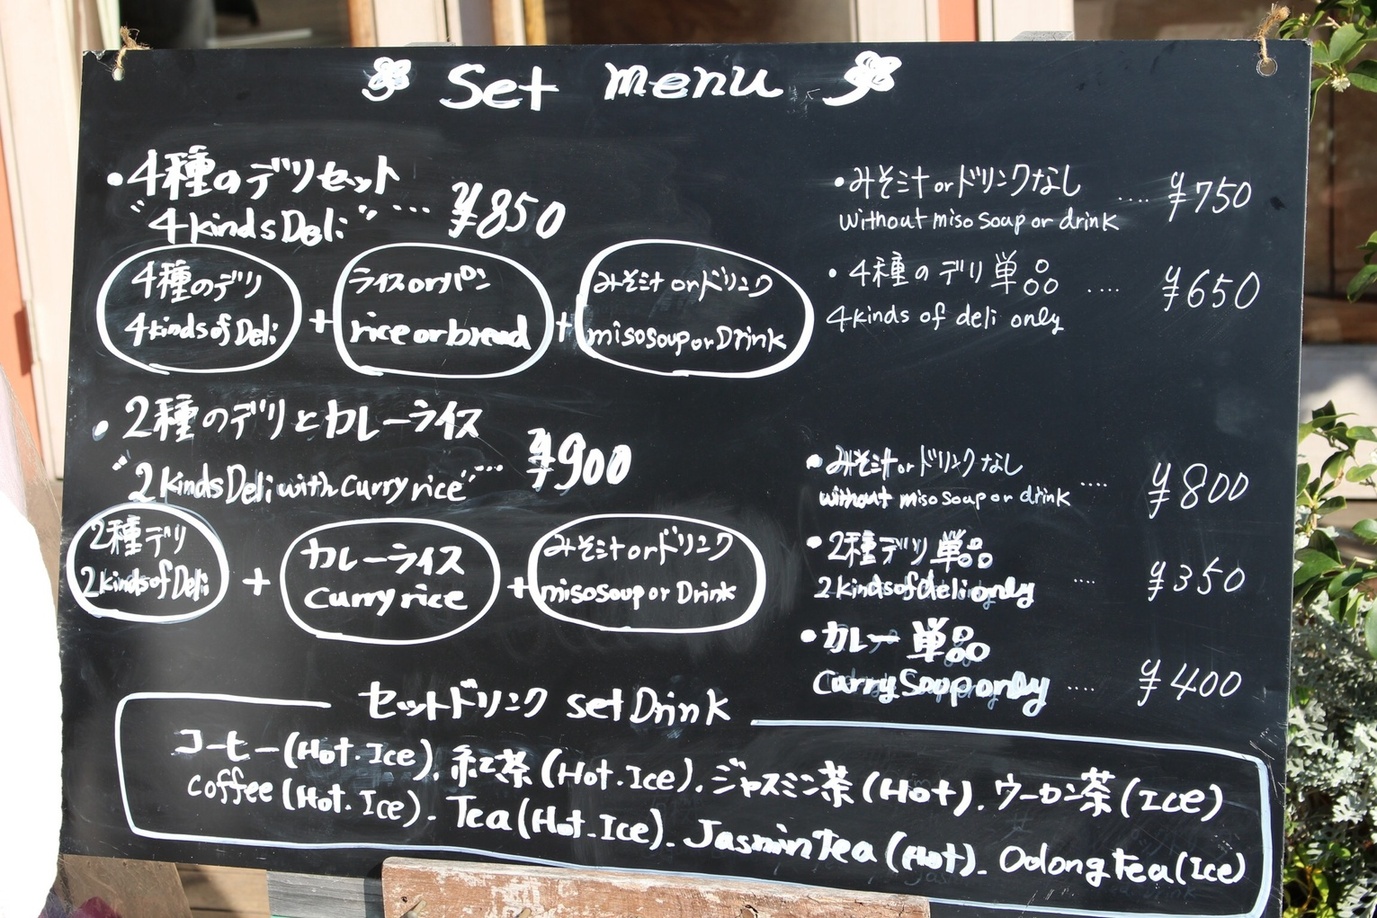 Set menu
・4種のデリセット
"4kindsDeli"… ¥850
4種のデリ
4kindsofDeli
+
ライスorパン
riceorbread
+
みそ汁orドリンク
misosouporDrink
・みそ汁orドリンクなし
without miso soup or drink
.... ¥750
・4種のデリ単品
4kinds of deli only
.... ¥650
・2種のデリとカレーライス
"2kindsDeliwithcurryrice"… ¥900
2種デリ
2kindsofDeli
+
カレーライス
curryrice
+
みそ汁orドリンク
misosoupor Drink
・みそ汁orドリンクなし
without miso soup or drink
.... ¥800
・2種デリ単品
2kindsofdelionly
.... ¥350
・カレー単品
CurrySouponly
.... ¥400
セットドリンク setDrink
コーヒー(Hot.Ice).紅茶(Hot.Ice).ジャスミン茶(Hot).ウーロン茶(Ice)
coffee(Hot.Ice).Tea(Hot.Ice).JasminTea(Hot).OolongTea(Ice)